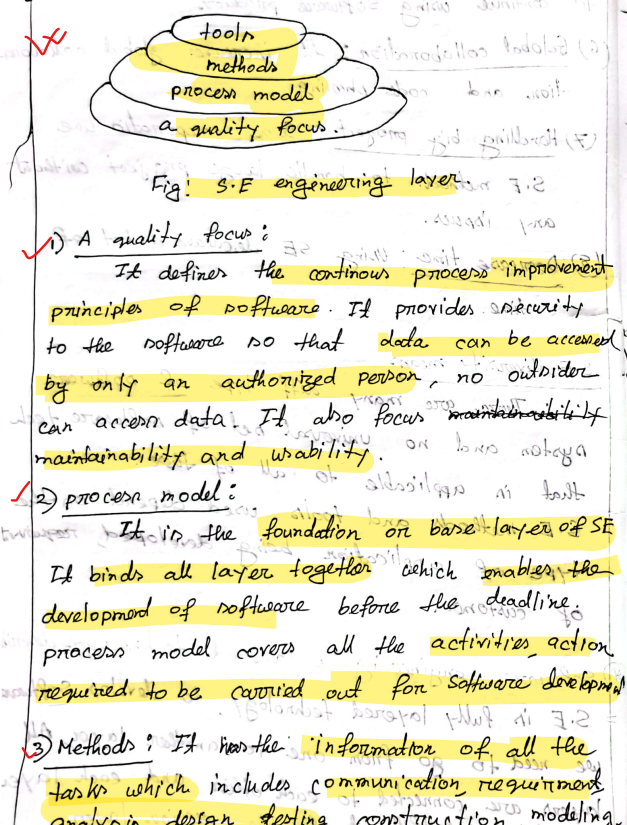 tools
methods
process model
a quality focus.
Fig: S.E engineering layer.
1) A quality focus:
It defines the continous process improvement
principles of software. It provides security
to the software so that data can be accessed
by only an authorized person, no outsider
can access data. It also focus maintainability
maintainability and usability.
2) process model:
It is the foundation or base layer of SE
It binds all layer together which enables the
development of software before the deadline.
process model covers all the activities, action
required to be carried out for software development
3) Methods: It has the information of all the
tasks which includes communication, requirment
analysis, design, testing, construction, modeling,